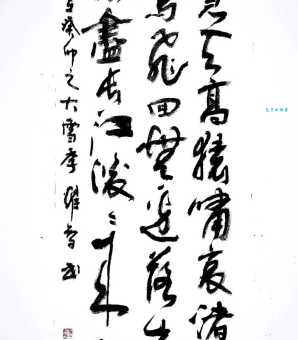 急天高猿嘯哀渚
鳥飛回無邊落木
盡長江滾〻来
癸卯之大雪季